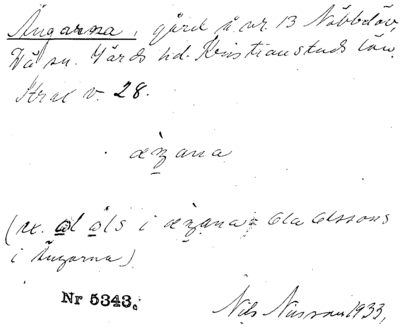 Ängarna, gård å nr. 13 Näbbelöv,
Vå sn. Gärds hd. Kristianstads län.
Strax v. 28.
æŋana
(ex. ol ols i æŋana = Ola Olssons
i Ängarna)
Nr 5343.
Nils 1933.